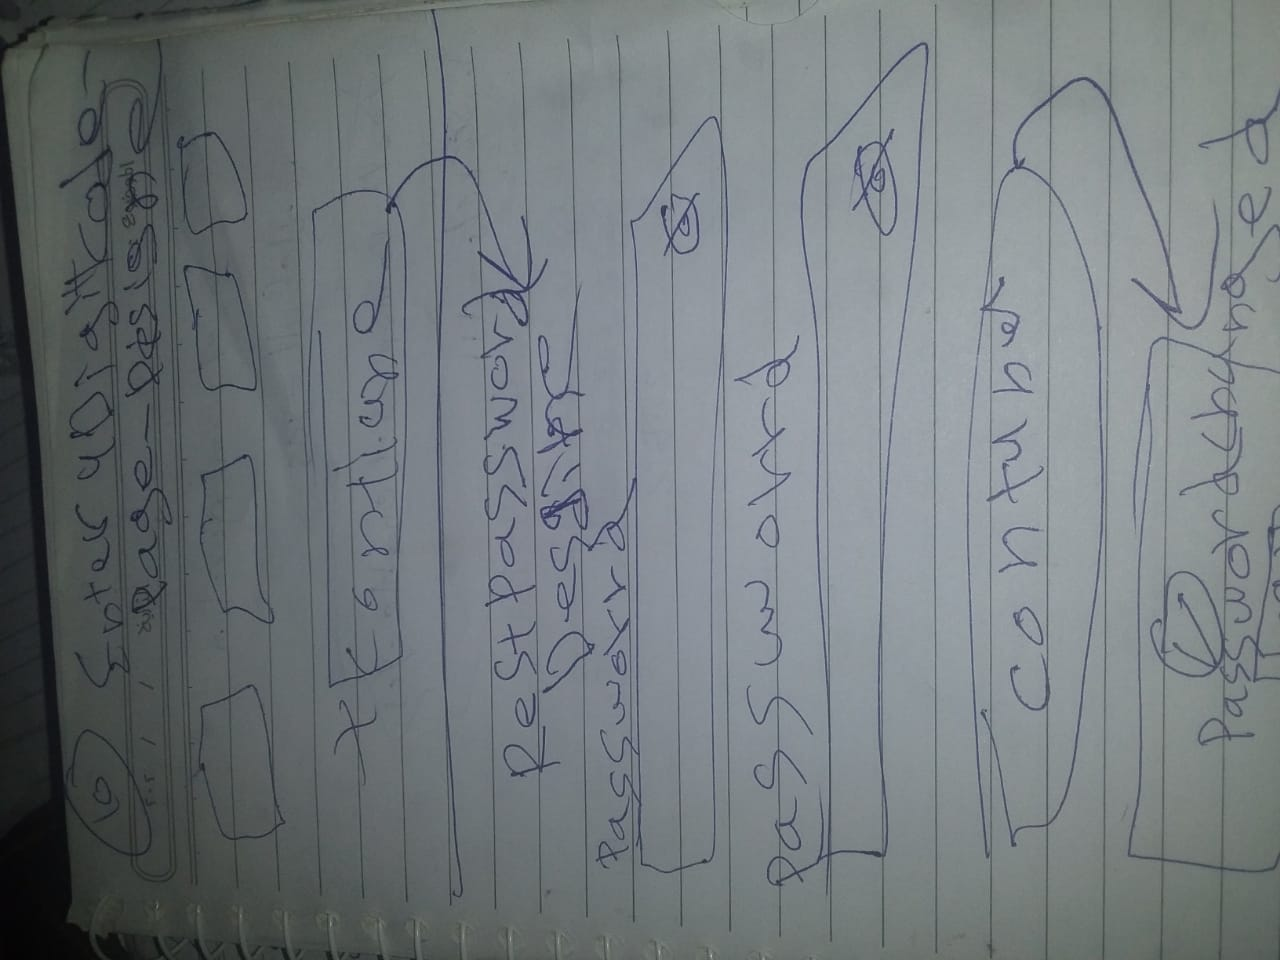 10 Enter 4 Digit Code
Page-Designe
Rest Password
Designe
Password
Password
contuber
Password chynged